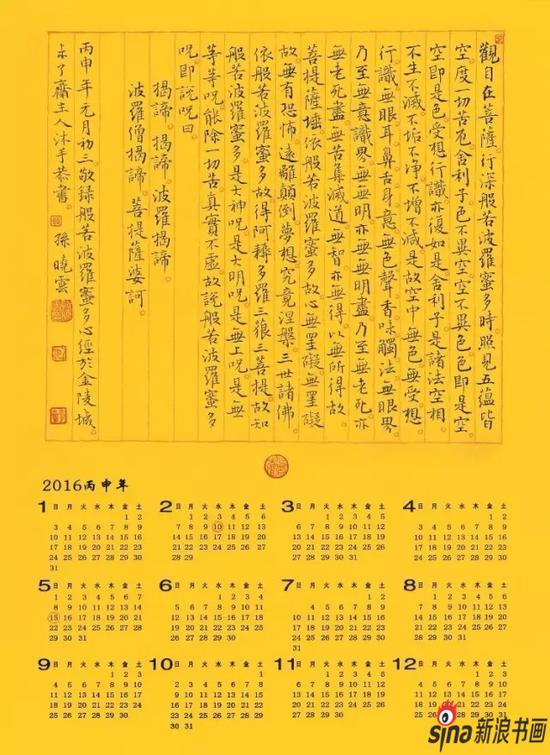 觀自在菩薩行深般若波羅蜜多時照見五蘊皆
空度一切苦厄舍利子色不異空空不異色色即是空
空即是色受想行識亦復如是舍利子是諸法空相
不生不滅不垢不淨不增不減是故空中無色無受想
行識無眼耳鼻舌身意無色聲香味觸法無眼界
乃至無意識界無無明亦無無明盡乃至無老死亦
無老死盡無苦集滅道無智亦無得以無所得故
菩提薩埵依般若波羅蜜多故心無罣礙無罣礙
故無有恐怖遠離顛倒夢想究竟涅槃三世諸佛
依般若波羅蜜多故得阿耨多羅三藐三菩提故知
般若波羅蜜多是大神呪是大明呪是無上呪是無
等等呪能除一切苦真實不虛故說般若波羅蜜多
呪即說呪曰
揭諦 揭諦 波羅揭諦
波羅僧揭諦 菩提薩婆訶
丙申年元月初三敬錄般若波羅蜜多心經於金陵城
未了齋主人沐手恭書 孫曉雲
2016丙申年
1 日 月 火 水 木 金 土
1 2
3 4 5 6 7 8 9
10 11 12 13 14 15 16
17 18 19 20 21 22 23
24 25 26 27 28 29 30
31
2 日 月 火 水 木 金 土
1 2 3 4 5 6
7 8 9 10 11 12 13
14 15 16 17 18 19 20
21 22 23 24 25 26 27
28 29
3 日 月 火 水 木 金 土
1 2 3 4 5
6 7 8 9 10 11 12
13 14 15 16 17 18 19
20 21 22 23 24 25 26
27 28 29 30 31
4 日 月 火 水 木 金 土
1 2
3 4 5 6 7 8 9
10 11 12 13 14 15 16
17 18 19 20 21 22 23
24 25 26 27 28 29 30
5 日 月 火 水 木 金 土
1 2 3 4 5 6 7
8 9 10 11 12 13 14
15 16 17 18 19 20 21
22 23 24 25 26 27 28
29 30 31
6 日 月 火 水 木 金 土
1 2 3 4
5 6 7 8 9 10 11
12 13 14 15 16 17 18
19 20 21 22 23 24 25
26 27 28 29 30
7 日 月 火 水 木 金 土
1 2
3 4 5 6 7 8 9
10 11 12 13 14 15 16
17 18 19 20 21 22 23
24 25 26 27 28 29 30
31
8 日 月 火 水 木 金 土
1 2 3 4 5 6
7 8 9 10 11 12 13
14 15 16 17 18 19 20
21 22 23 24 25 26 27
28 29 30 31
9 日 月 火 水 木 金 土
1 2 3
4 5 6 7 8 9 10
11 12 13 14 15 16 17
18 19 20 21 22 23 24
25 26 27 28 29 30
10 日 月 火 水 木 金 土
1
2 3 4 5 6 7 8
9 10 11 12 13 14 15
16 17 18 19 20 21 22
23 24 25 26 27 28 29
30 31
11 日 月 火 水 木 金 土
1 2 3 4 5
6 7 8 9 10 11 12
13 14 15 16 17 18 19
20 21 22 23 24 25 26
27 28 29 30
12 日 月 火 水 木 金 土
1 2 3
4 5 6 7 8 9 10
11 12 13 14 15 16 17
18
25
sina新浪书画